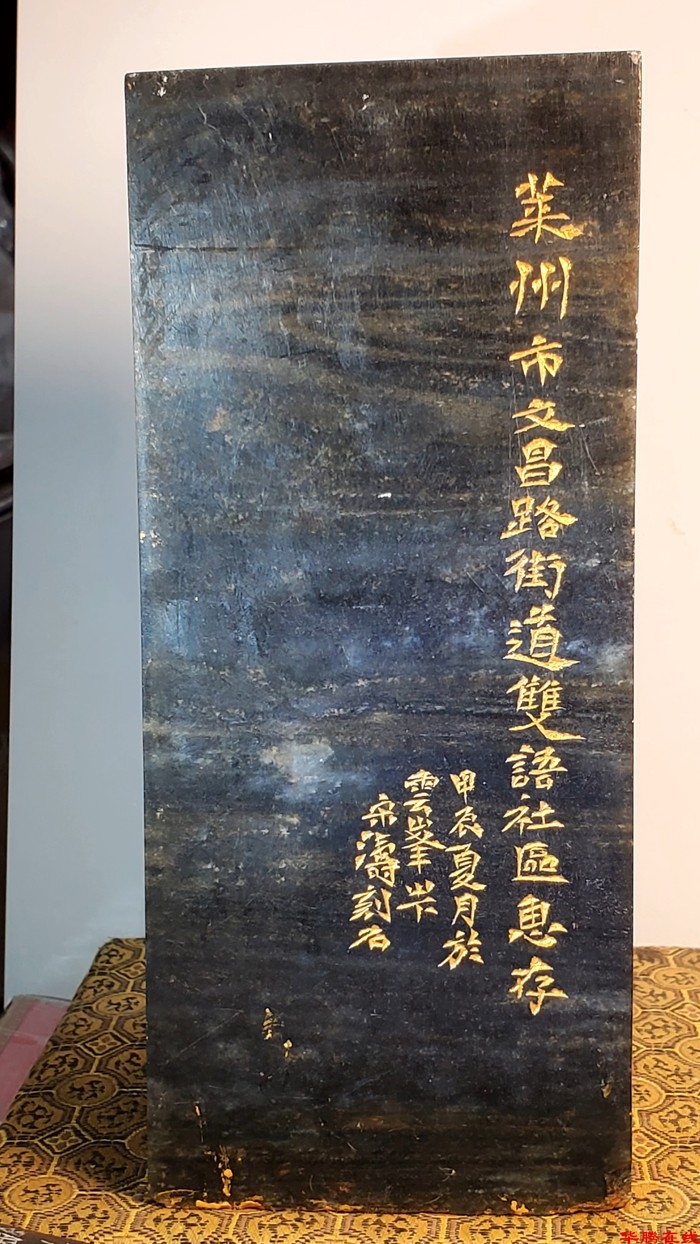 莱州市文昌路街道雙語社區惠存
甲辰夏月於
雲峯
濤刻石
华腾在线